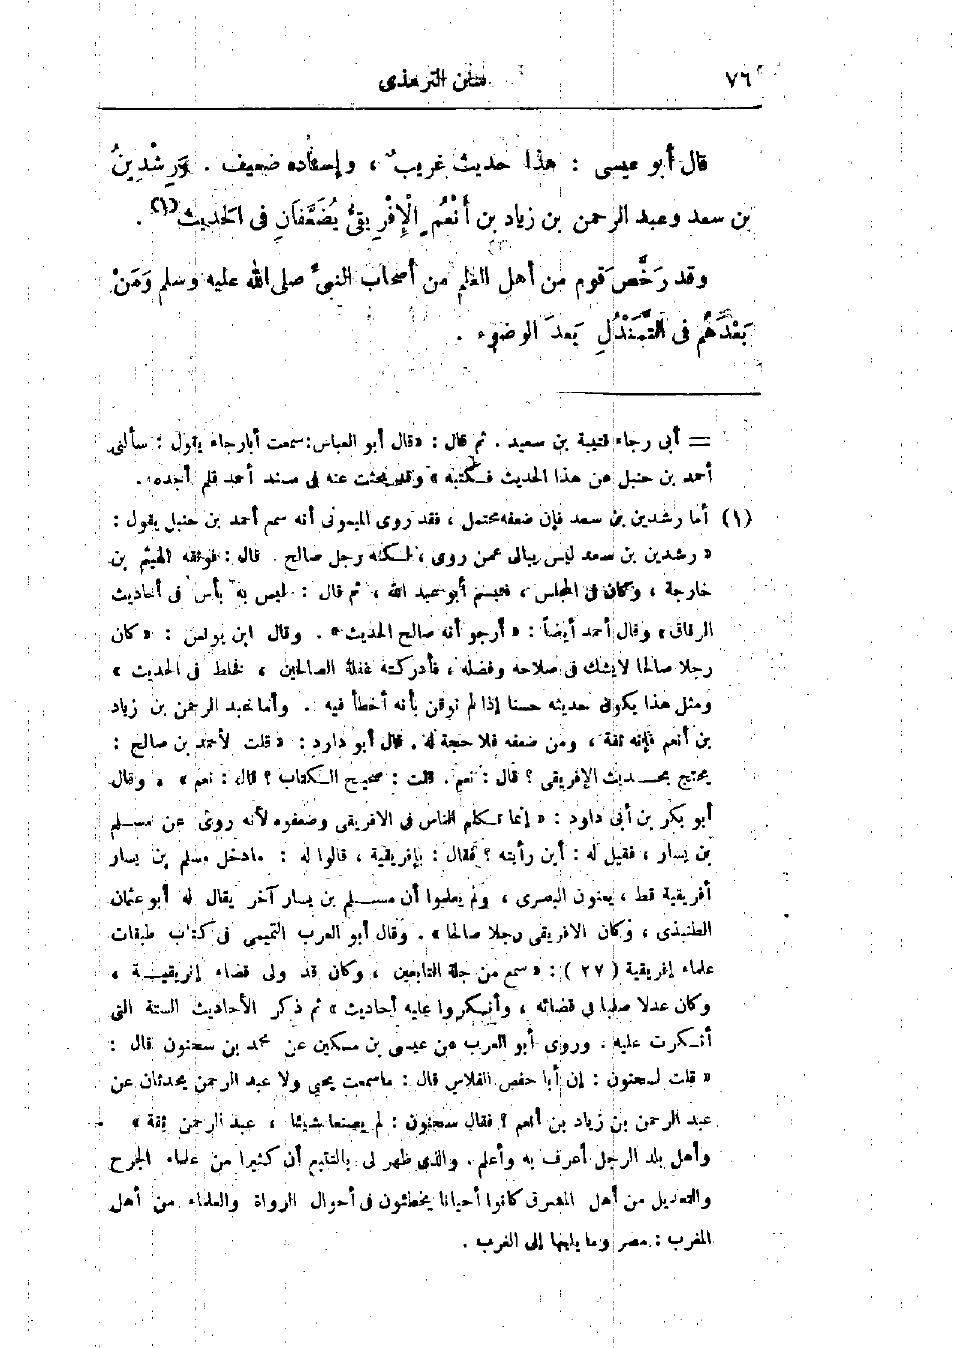 ٧٦
سنن الترمذى
قال أبو عيسى : هذا حديث غريب ، وإسناده ضعيف . وَرِشْدِينُ
بن سعد وعبد الرحمن بن زياد بن أَنْعُمٍ الْإِفْرِيقىُّ يُضَعَّفَانِ فى الحديث (١) .
وقد رَخَّصَ قوم من أهل العلم من أصحاب النبىِّ صلى الله عليه وسلم وَمَنْ
بَعْدَهُمْ فى التَّمَنْدُلِ بَعدَ الوضوء .
= أبى رجاء قتيبة بن سعيد . ثم قال : « قال أبو العباس : سمعت أبا رجاء يقول : سألنى
أحمد بن حنبل عن هذا الحديث فكتبه » وقد بحثت عنه فى مسند أحمد فلم أجده .
(١) أما رشدين بن سعد فإن ضعفه محتمل ، فقد روى الميمونى أنه سمع أحمد بن حنبل يقول :
« رشدين بن سعد ليس يبالى عمن روى ، لكنه رجل صالح . قال : فوثقه الهيثم بن
خارجة ، وكان فى المجلس ، فتبسم أبو عبد الله ، ثم قال : ليس به بأس فى أحاديث
الرقاق » وقال أحمد أيضاً : « أرجو أنه صالح الحديث » . وقال ابن يونس : « كان
رجلا صالحا لا يشك فى صلاحه وفضله ، فأدركته غفلة الصالحين ، فخلط فى الحديث »
ومثل هذا يكون حديثه حسنا إذا لم نوقن بأنه أخطأ فيه . وأما عبد الرحمن بن زياد
بن أنعم فإنه ثقة ، ومن ضعفه فلا حجة له . قال أبو داود : « قلت لأحمد بن صالح :
يحتج بحديث الإفريقى ؟ قال : نعم . قلت : صحيح الكتاب ؟ قال : نعم » . وقال
أبو بكر بن أبى داود : « إنما تكلم الناس فى الافريقى وضعفوه لأنه روى عن مسلم
بن يسار ، فقيل له : أين رأيته ؟ فقال : بإفريقية ، قالوا له : مادخل مسلم بن يسار
أفريقية قط ، يعنون البصرى ، ولم يعلموا أن مسلم بن يسار آخر يقال له أبو عثمان
الطنبذى ، وكان الافريقى رجلا صالحا » . وقال أبو العرب التميمى فى كتاب طبقات
علماء إفريقية ( ٢٧ ) : « سمع من جلة التابعين ، وكان قد ولى قضاء إفريقية ،
وكان عدلا صلبا فى قضائه ، وأنكروا عليه أحاديث » ثم ذكر الأحاديث الستة التى
أنكرت عليه . وروى أبو العرب عن عيسى بن مسكين عن محمد بن سحنون قال :
« قلت لسحنون : إن أبا حفص الفلاس قال : ماسمعت يحيى ولا عبد الرحمن يحدثان عن
عبد الرحمن بن زياد بن أنعم ؟ فقال سحنون : لم يصنعا شيئا ، عبد الرحمن ثقة »
وأهل بلد الرجل أعرف به وأعلم . والذى ظهر لى بالتتبع أن كثيرا من علماء الجرح
والتعديل من أهل المشرق كانوا أحيانا يخطئون فى أحوال الرواة والعلماء من أهل
المغرب : مصر وما يليها إلى الغرب .